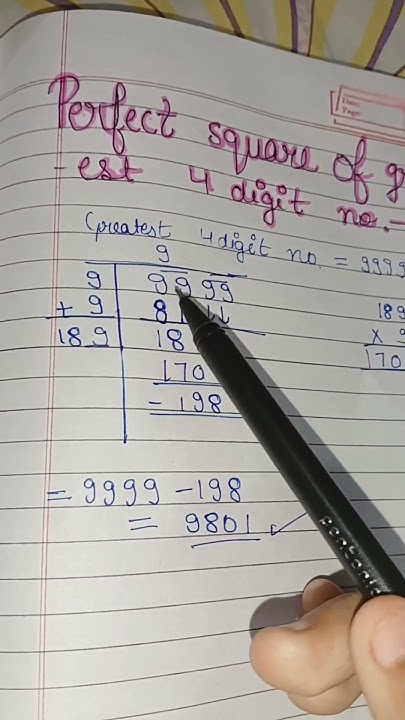 Perfect square of
-est 4 digit no.-
Greatest 4 digit no. = 9999
9
9 99 99
+ 9 81 ↓↓
189 18
170
- 198
189
x 9
170
= 9999 - 198
= 9801